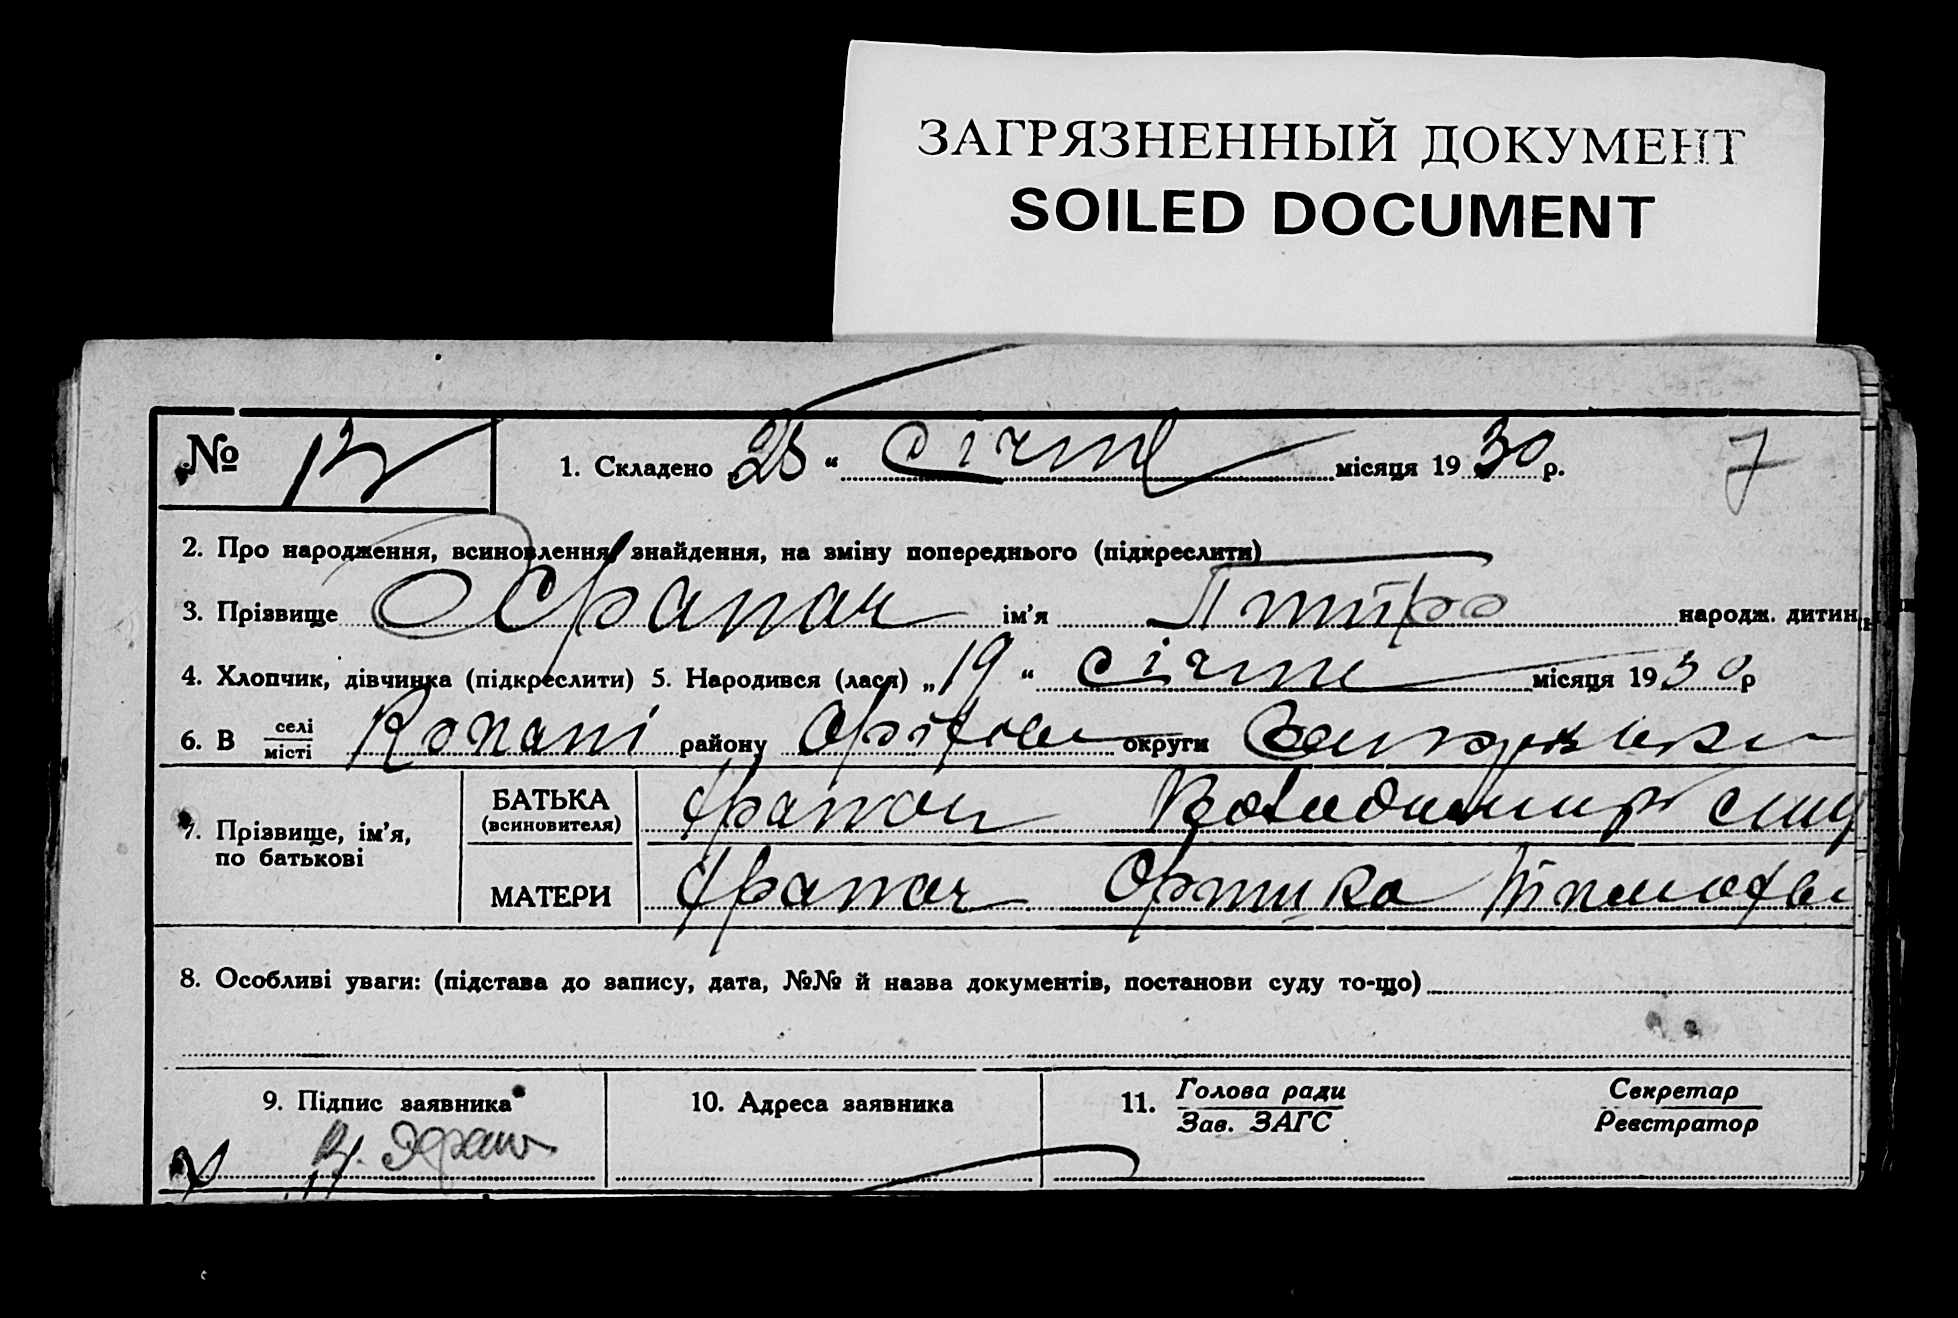 ЗАГРЯЗНЕННЫЙ ДОКУМЕНТ
SOILED DOCUMENT
№ 13
1. Складено „25“ січня місяця 1930 р. 7
2. Про народження, всиновлення, знайдення, на зміну попереднього (підкреслити)
3. Прізвище ім'я Питро народж. дитини
4. Хлопчик, дівчинка (підкреслити) 5. Народився (лася) „19“ січня місяця 1930 р
6. В селі місті Копані району Оріхові округи
7. Прізвище, ім'я, по батькові
БАТЬКА (всиновителя) Володимир
МАТЕРИ
8. Особливі уваги: (підстава до запису, дата, №№ й назва документів, постанови суду то-що)
9. Підпис заявника
10. Адреса заявника
11. Голова ради Зав. ЗАГС
Секретар Реєстратор